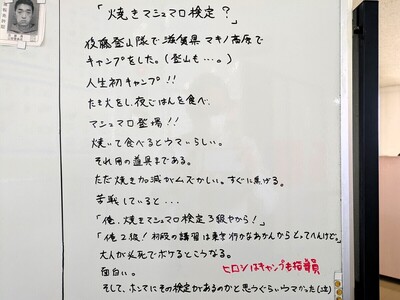 「焼きマシュマロ検定？」
後藤登山隊で滋賀県マキノ高原で
キャンプをした。(登山も…。)
人生初キャンプ！！
たき火をし、夜ごはんを食べ、
マシュマロ登場！！
焼いて食べるとウマいらしい。
それ用の道具まである。
ただ焼き加減がムズかしい。すぐに焦げる。
苦戦していると…
「俺、焼きマシュマロ検定3級やから！」
「俺2級！初段の講習は東京行かなあかんからとってへんけど。」
大人が必死でボケるとこうなる。
面白い。
そして、ホンマにその検定があるのかと思うぐらいウマかった(泣)
ヒロシはキャンプも指導員